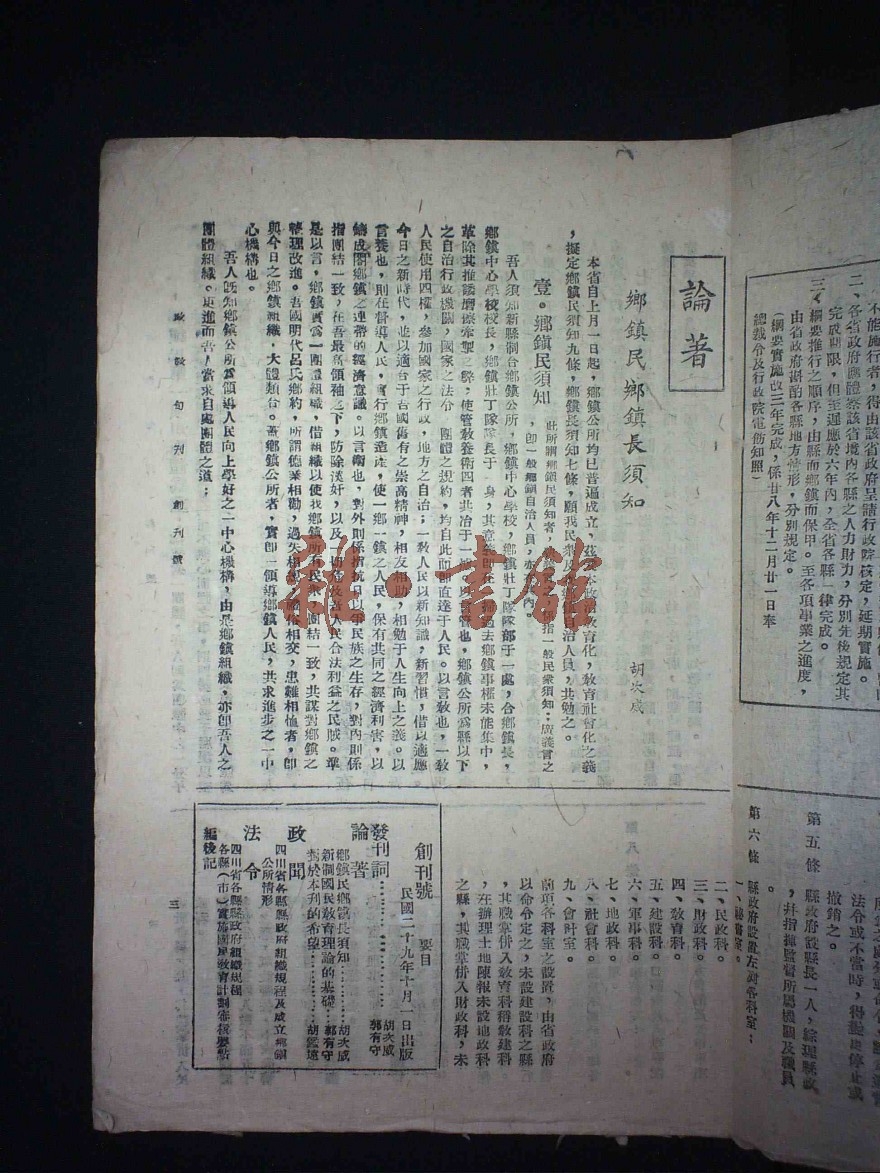 不能施行者，得由該省政府呈請行政院核定，延期實施。
二、各省政府應體察該省境內各縣之人力財力，分別先後規定其
完成期限，但至遲應於六年內，全省各縣一律完成。
三、綱要推行之順序，由縣而鄉鎮而保甲。至各項事業之進度，
由省政府斟酌各縣地方情形，分別規定。
（綱要實施改三年完成，係廿八年十二月廿一日奉
總裁令及行政院電飭知照）
論著
鄉鎮民鄉鎮長須知
胡次威
本省自上月一日起，鄉鎮公所均已普遍成立，茲本政治教育化，教育社會化之義
，擬定鄉鎮民須知九條，鄉鎮長須知七條，願我民衆及自治人員，共勉之。
壹。鄉鎮民須知
此所謂鄉鎮民須知者，指一般民衆須知；廣義言之
，即一般鄉鎮自治人員，亦在內。
吾人須知新縣制合鄉鎮公所，鄉鎮中心學校，鄉鎮壯丁隊隊部于一處，合鄉鎮長，
鄉鎮中心學校校長，鄉鎮壯丁隊隊長于一身，其意義即在過去鄉鎮事權未能集中，
革除其推諉磨擦牽掣之弊；使管教養衛四者共冶于一，以言管也，鄉鎮公所爲縣以下
之自治行政機關，國家之法令，團體之規約，均自此而即直達于人民。以言教也，一教
人民使用四權，參加國家之行政，地方之自治；一教人民以新知識，新習慣，借以適應
今日之新時代，並以適合于吾國舊有之崇高精神，相友相助，相勉于人生向上之義。以
言養也，則在督導人民，實行鄉鎮造產，使一鄉一鎮之人民，保有共同之經濟利害，以
鑄成閤鄉鎮之連帶的經濟意識。以言衛也，對外則係指抗日以爭民族之生存，對內則係
指團結一致，在吾最高領袖之下，防除漢奸，以及一切危及吾人民合法利益之民賊。準
是以言，鄉鎮實爲一團體組織，借組織以使我鄉鎮所有民衆，團結一致，共謀對鄉鎮之
整理改進。吾國明代呂氏鄉約，所謂德業相勸，過失相規，禮俗相交，患難相恤者，即
與今日之鄉鎮組織，大體類合。蓋鄉鎮公所者，實即一領導鄉鎮人民，共求進步之一中
心機構也。
吾人既知鄉鎮公所爲領導人民向上學好之一中心機構，由是鄉鎮組織，亦即吾人之
團體組織。更進而吾人當求自處團體之道；
旬刊 創刊號
三
法令或不當時，得
撤銷之。
第五條 縣政府設縣長一人，綜理縣政
，幷指揮監督所屬機關及職員
。
第六條 縣政府設置左列各科室；
一、祕書室。
二、民政科。
三、財政科。
四、教育科。
五、建設科。
六、軍事科。
七、地政科。
八、社會科。
九、會計室。
前項各科室之設置，由省政府
以命令定之，未設建設科之縣
，其職掌併入教育科稱教建科
，在辦理土地陳報未設地政科
之縣，其職掌併入財政科，未
創刊號 要目
民國二十九年十月一日出版
發刊詞……胡次威 郭有守
論著
鄉鎮民鄉鎮長須知……胡次威
新制國民教育理論的基礎……郭有守
對於本刊的希望……胡鑑遠
政聞
四川省各縣縣政府組織規程及成立鄉鎮
公所情形
法令
四川省各縣縣政府組織規程
各縣（市）實施國民教育計劃審核要點
編後記
書館